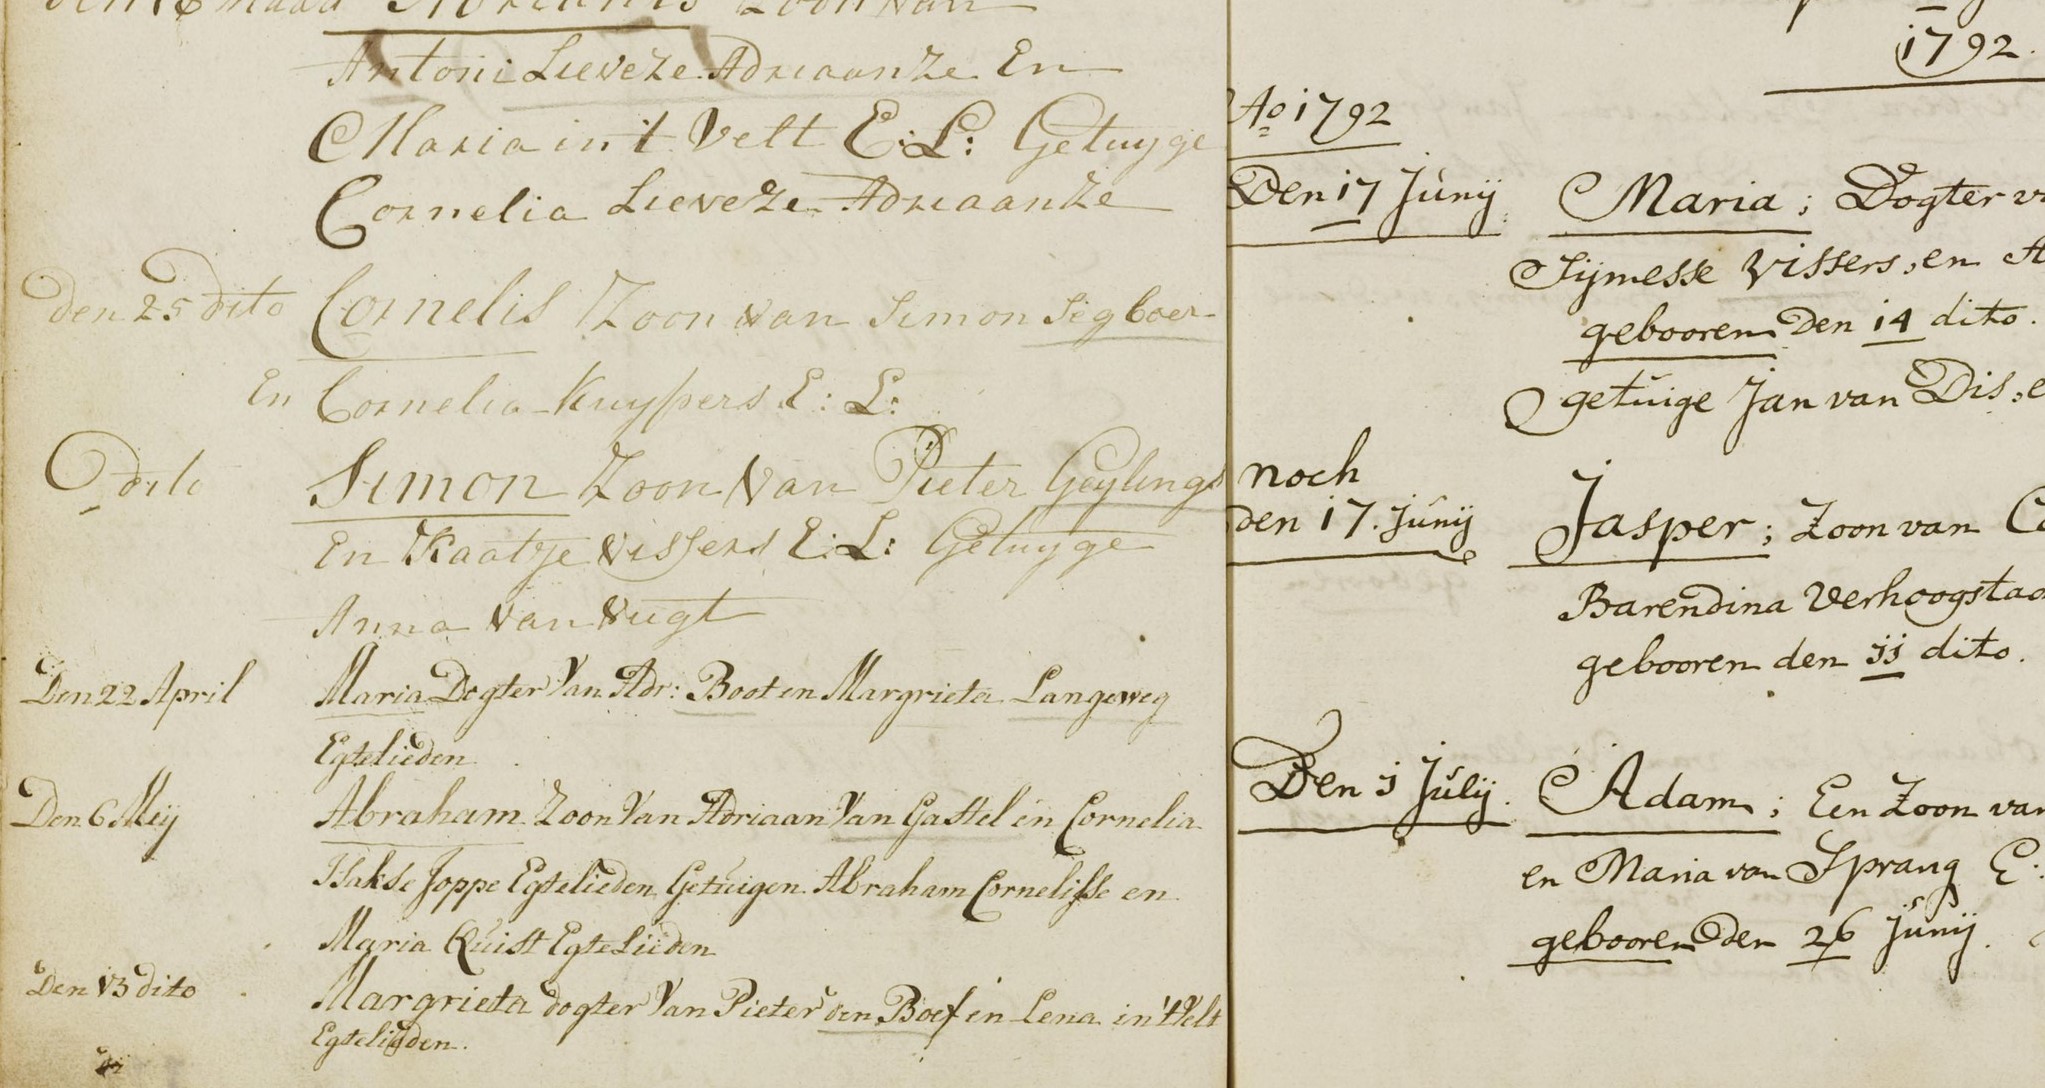 Maart Adriaanis Zoon van
Antoni Lieveze Adriaanze En
Maria in t Velt E: L: Getuyge
Cornelia Lieveze Adriaanze
den 25 dito Cornelis Zoon van Simon Segboer
En Cornelia Kuypers E: L:
dito Simon Zoon van Pieter Geylings
En Kaatje Vissers E: L: Getuyge
Anna van Vugt
Den 22 April Maria Dogter Van Adr: Boot en Margrieta Langeweg
Egtelieden
Den 6 Meij Abraham Zoon Van Adriaan Van Gastel en Cornelia
Isakse Joppe Egtelieden Getuigen Abraham Cornelisse en
Maria Quist Egte Lieden
Den 13 dito Margrieta dogter Van Pieter den Boef en Lena in 't Velt
Egtelieden.
1792.
Ao 1792
Den 17 Junij Maria; Dogter
Sijmesse Vissers, en
gebooren Den 14 dito.
getuige Jan van Dis,
noch
den 17. Junij Jasper; Zoon van
Barendina Verhoogstad
gebooren den 11 dito.
Den 1 Julij. Adam; Een Zoon van
en Maria van Sprang E:
gebooren Den 26 Junij.